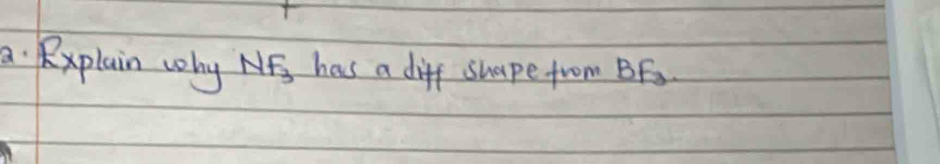 2. Explain why NF₃ has a diff shape from BF₃.